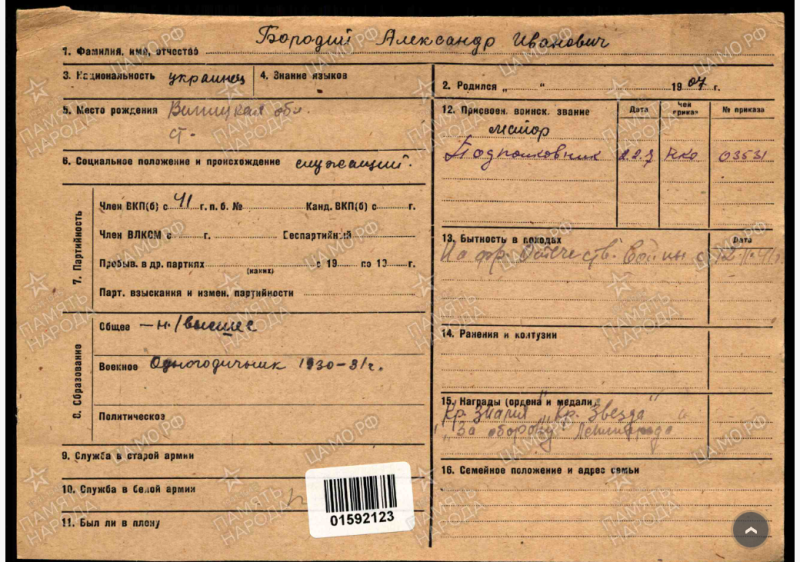 1. Фамилия, имя, отчество Бородий Александр Иванович
3. Национальность украинец 4. Знание языков
5. Место рождения Виницкая обл.
ст.
6. Социальное положение и происхождение служащий.
7. Партийность
Член ВКП(б) с 41 г. п. б. № Канд. ВКП(б) с г.
Член ВЛКСМ с г. Беспартийный
Пребыв. в др. партиях с 19 по 19 г.
(каких)
Парт. взыскания и измен. партийности
8. Образование
Общее – н/высшее
Военное Одногодичник 1930-31 г.
Политическое
9. Служба в старой армии
10. Служба в белой армии
11. Был ли в плену
2. Родился „ “ 1907 г.
12. Присвоен. воинск. звание Дата Чей приказ № приказа
майор
Подполковник НКО 03531
13. Бытность в походах Дата
На фр. Отечеств. Войны с
14. Ранения и контузии
15. Награды (ордена и медали)
Кр. Знамя „Кр. Звезда"
„За оборону Ленинграда
16. Семейное положение и адрес семьи
01592123
ПАМЯТЬ НАРОДА
ЦАМО.РФ